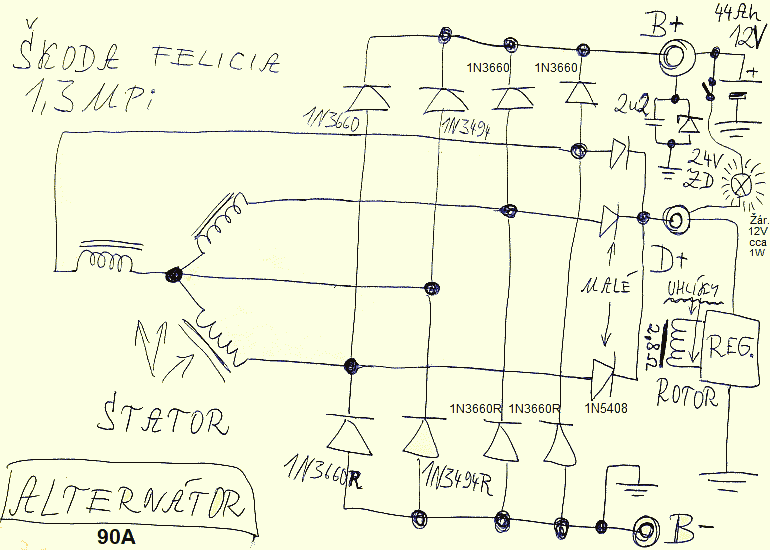 ŠKODA FELICIA
1,3 MPi
B+
44Ah
12V
+
1N3660
1N3494
1N3660
1N3660
2u2
24V
ZD
Žár.
12V
cca
1W
D+
MALÉ
UHLÍKY
2,8Ω
REG.
ROTOR
1N5408
ŠTATOR
1N3660R
1N3494R
1N3660R
1N3660R
ALTERNÁTOR
90A
B-